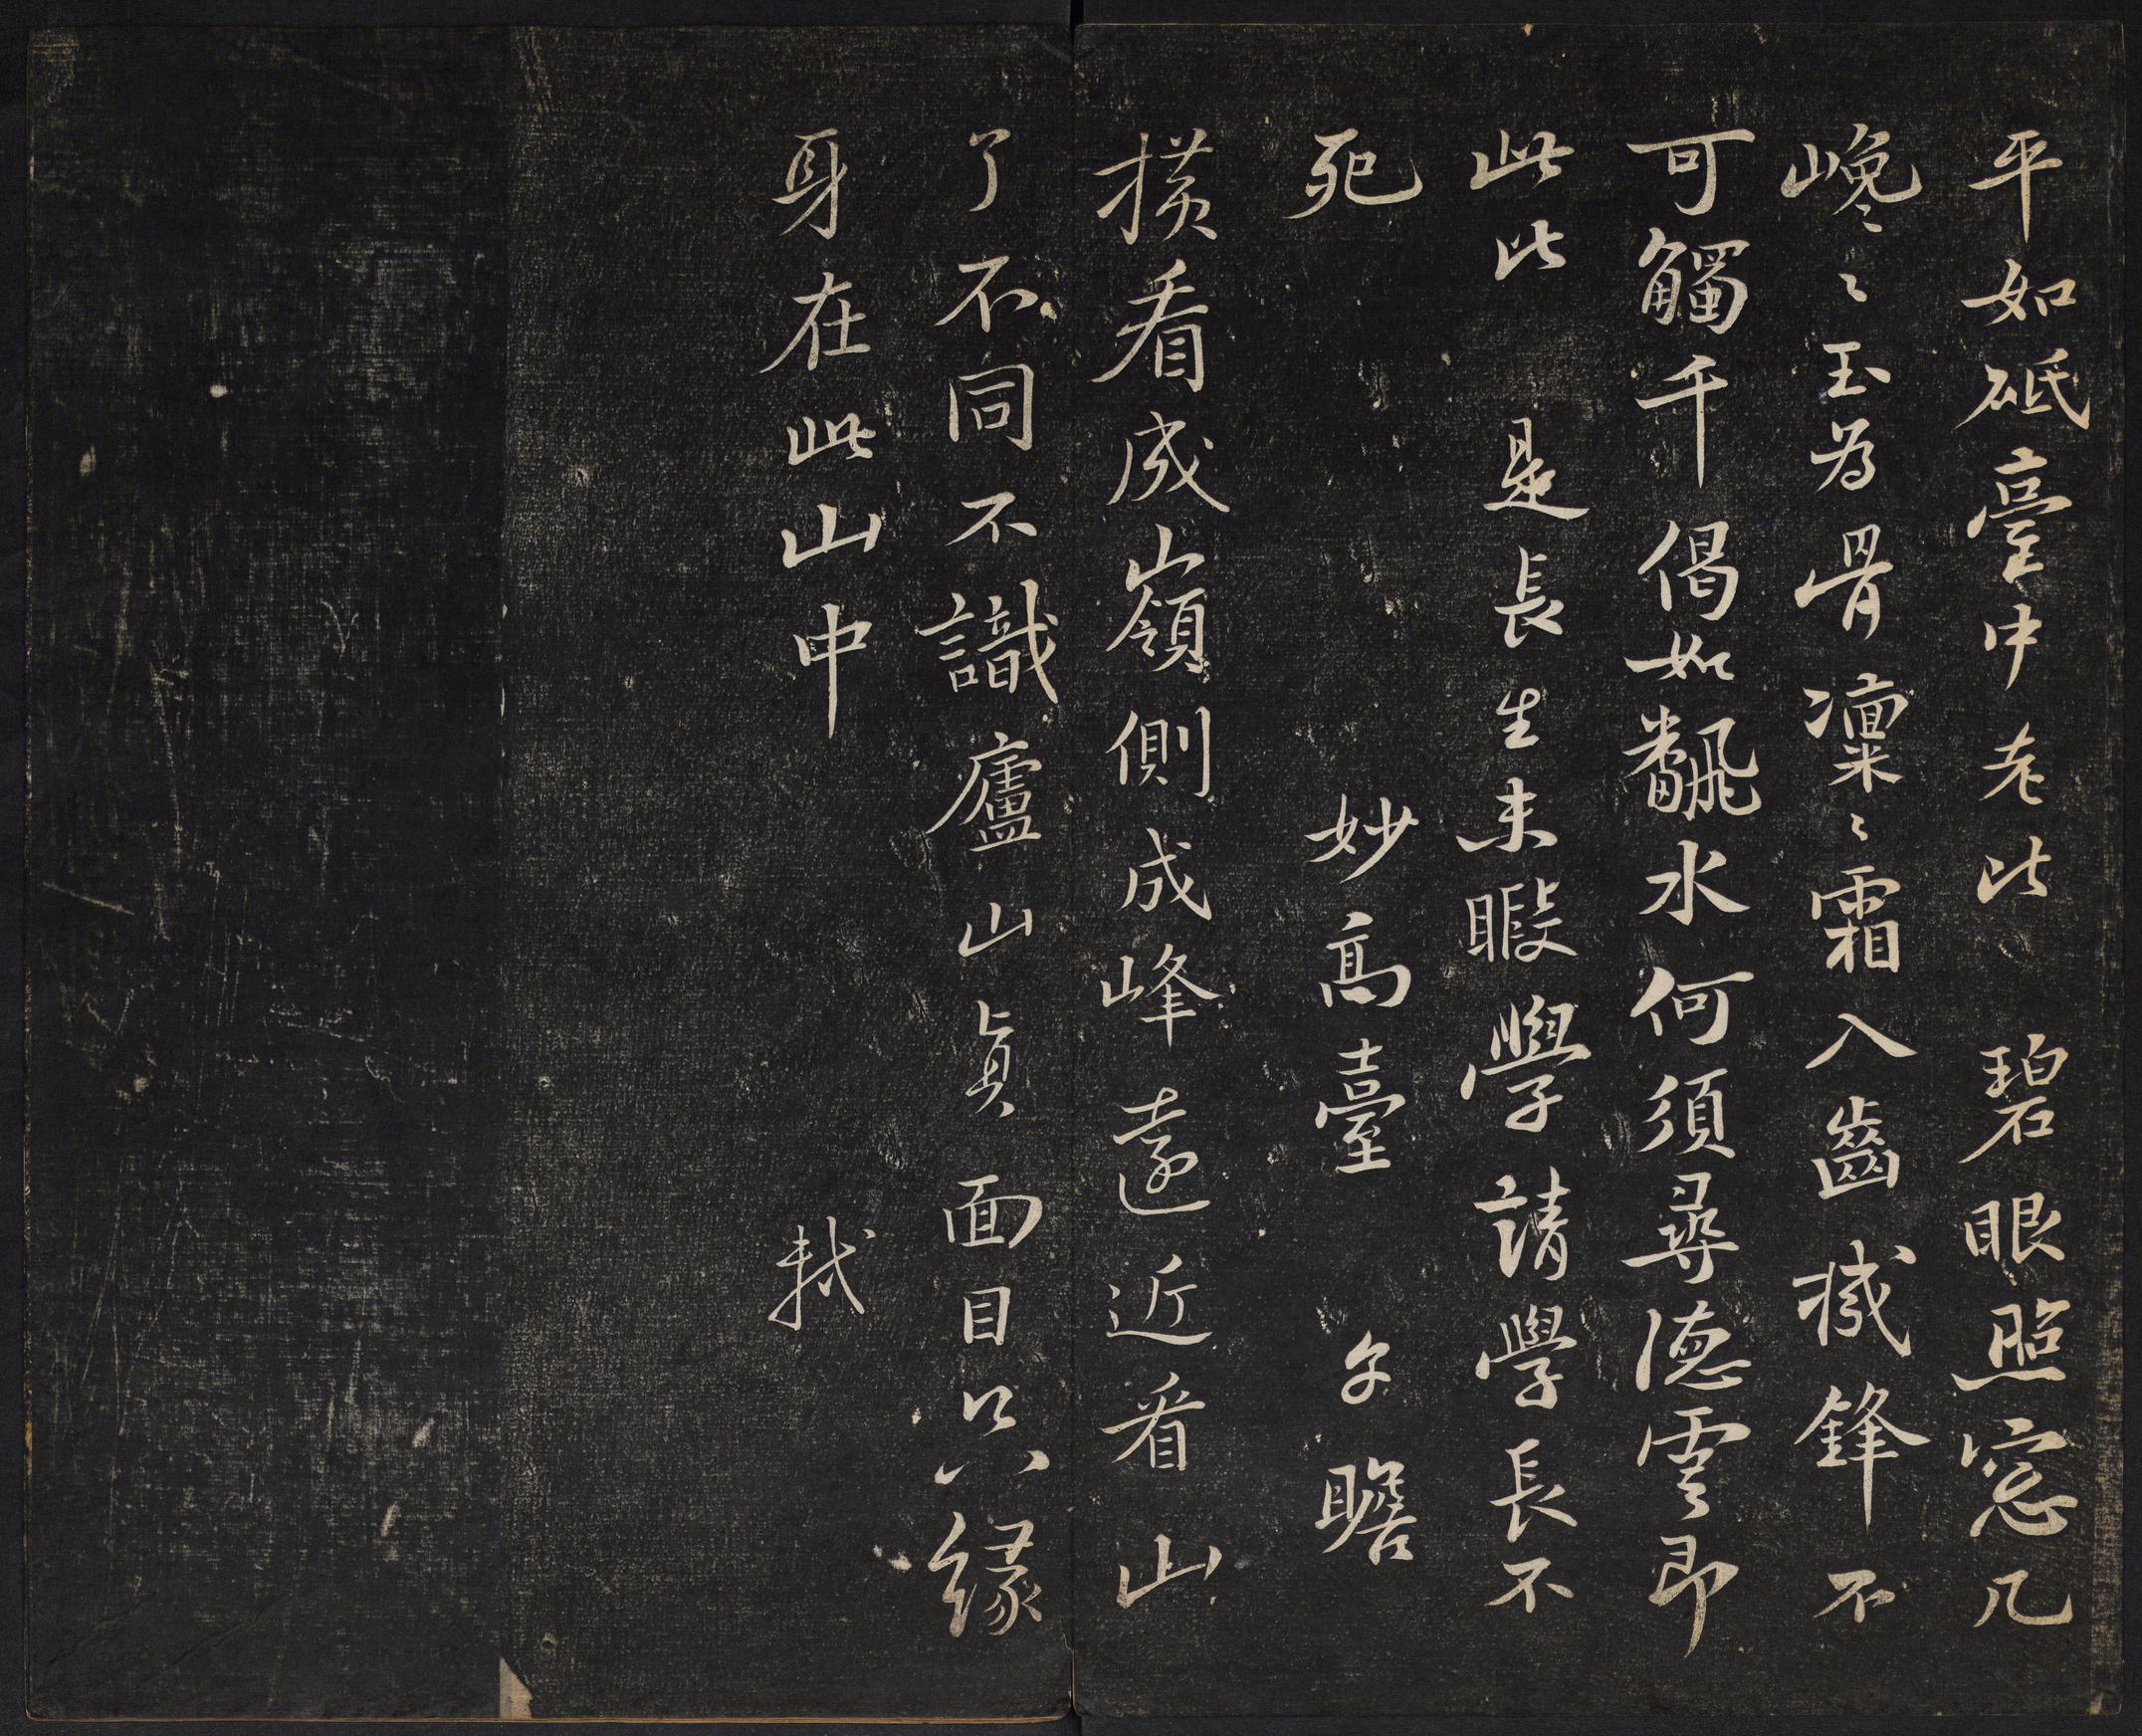 平如砥臺中老比 碧眼照窓几
巉巉〻玉為骨凜〻霜入齒機鋒不
可觸千偈如飜水何須尋德雲即
此比 是長生未暇學請學長不
死 妙高臺 子瞻
橫看成嶺側成峰遠近看山
了不同不識廬山真面目只緣
身在此山中 軾